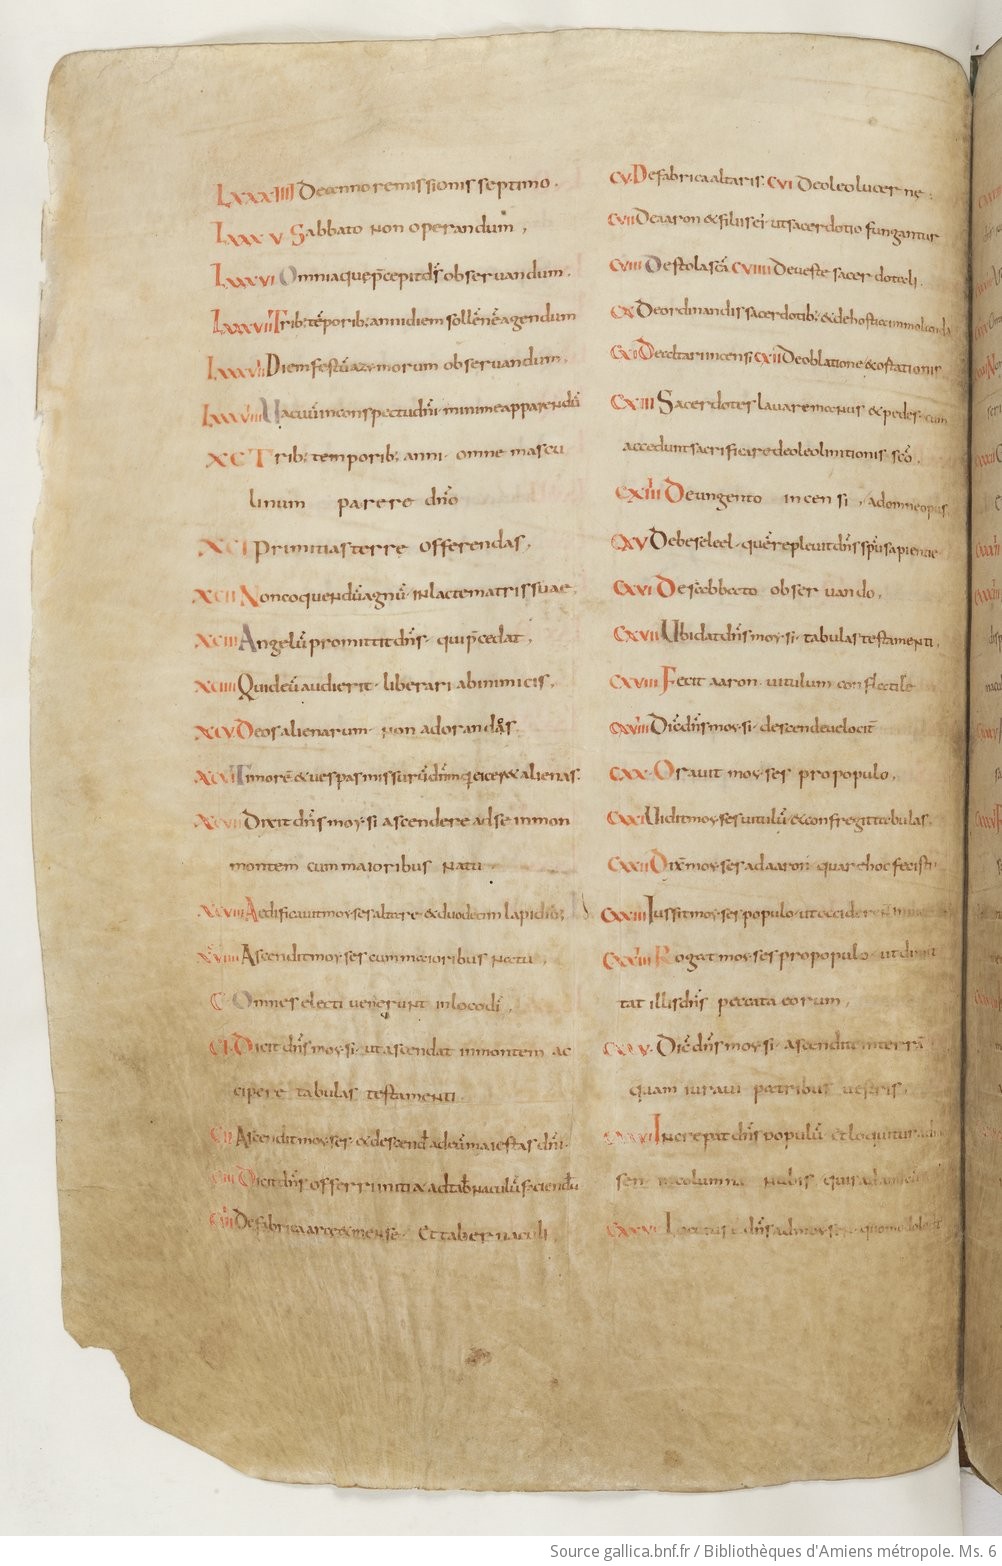 LXXXIIII De anno remissionis septimo.
LXXXV Sabbato non operandum,
LXXXVI Omnia que p̄cepit dn̄s observandum.
LXXXVII Trib; tēporib; anni diem sollēnē agendum
LXXXVIII Diem festū azymorum observandum.
LXXXVIIII Vacuū in conspectu dn̄i minime apparendū
XC Trib; temporib; anni omne mascu
linum parere dn̄o
XCI Primitias terre offerendas,
XCII Non coquendū agnū in lacte matris suae,
XCIII Angelū promittit dn̄s qui p̄cedat,
XCIIII Qui deū audierit liberari ab inimicis,
XCV Deos alienarum non adorandos.
XCVI Timorē & vespas missurū dn̄m
XCVII Dixit dn̄s moysi ascendere ad se in mon
montem cum maioribus natu
XCVIII Aedificavit moyses altare & duodecim lapidib;
XCVIIII Ascendit moyses cum maioribus natu,
C Omnes electi venerunt in loco dī,
CI Dicit dn̄s moysi ut ascendat in montem ac
cipere tabulas testamenti.
CII Ascendit moyses & descend̄ ad eū maiestas dn̄i.
CIII Dicit dn̄s offerri initia ad tab̄naculū faciendū
CIIII De fabrica arce & mense Et tabernaculi
CV De fabrica altaris. CVI De oleo lucerne:
CVII De aaron & filiis ei ut sacerdotio fungantur
CVIII De stola sc̄a CVIIII De veste sacerdotali.
CX De ordinandis sacerdotib; & de hostia immolanda
CXI De altari incensi CXII De oblatione & ostationis
CXIII Sacerdotes lavare manus & pedes cum
accedunt sacrificare de oleo linitionis sc̄o.
CXIIII De ungento incensi, ad omne opus
CXV De beseleel quē replevit dn̄s sp̄u sapientie
CXVI De sabbato observando,
CXVII Ubi dat dn̄s moysi tabulas testamenti,
CXVIII Fecit aaron vitulum conflectile
CXVIIII Dic̄ dn̄s moysi descende velocit̄
CXX Oravit moyses pro populo,
CXXI Vidit moyses vitulū & confregit tabulas,
CXXII Dix̄ moyses ad aaron quare hoc fecisti
CXXIII Iussit moyses populo ut occidere
CXXIIII Rogat moyses pro populo ut dimit
tat illis dn̄s peccata eorum,
CXXV Dic̄ dn̄s moysi ascendite in terrā
quam iuravi patribus vestris,
CXXVI Increpat dn̄s populū et loquitur ad mo
sen in columna nubis
CXXVII Locutus ē dn̄s ad moysen quomodo
Source gallica.bnf.fr / Bibliothèques d'Amiens métropole. Ms. 6